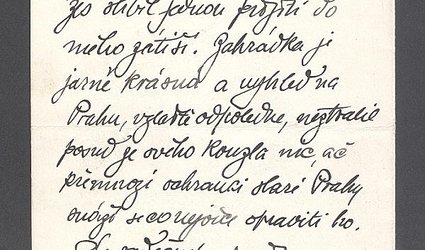 že slíbil jednou přijíti do
mého zátiší. Zahrádka je
jarně krásná a vyhled na
Prahu, vzláště odpoledne, neztratil
posud je svého kouzla nic, ač
přemnozí ochranci staré Prahy
snaží se co nejvíce opraviti ho.